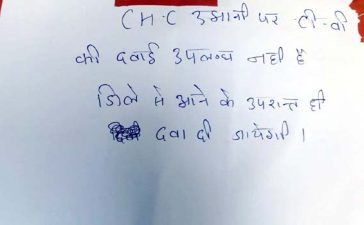 CH.C उझानी पर टी-वी
की दवाई उपलब्ध नही है
जिले से आने के उपरान्त ही
दवा दी जायेगी ।